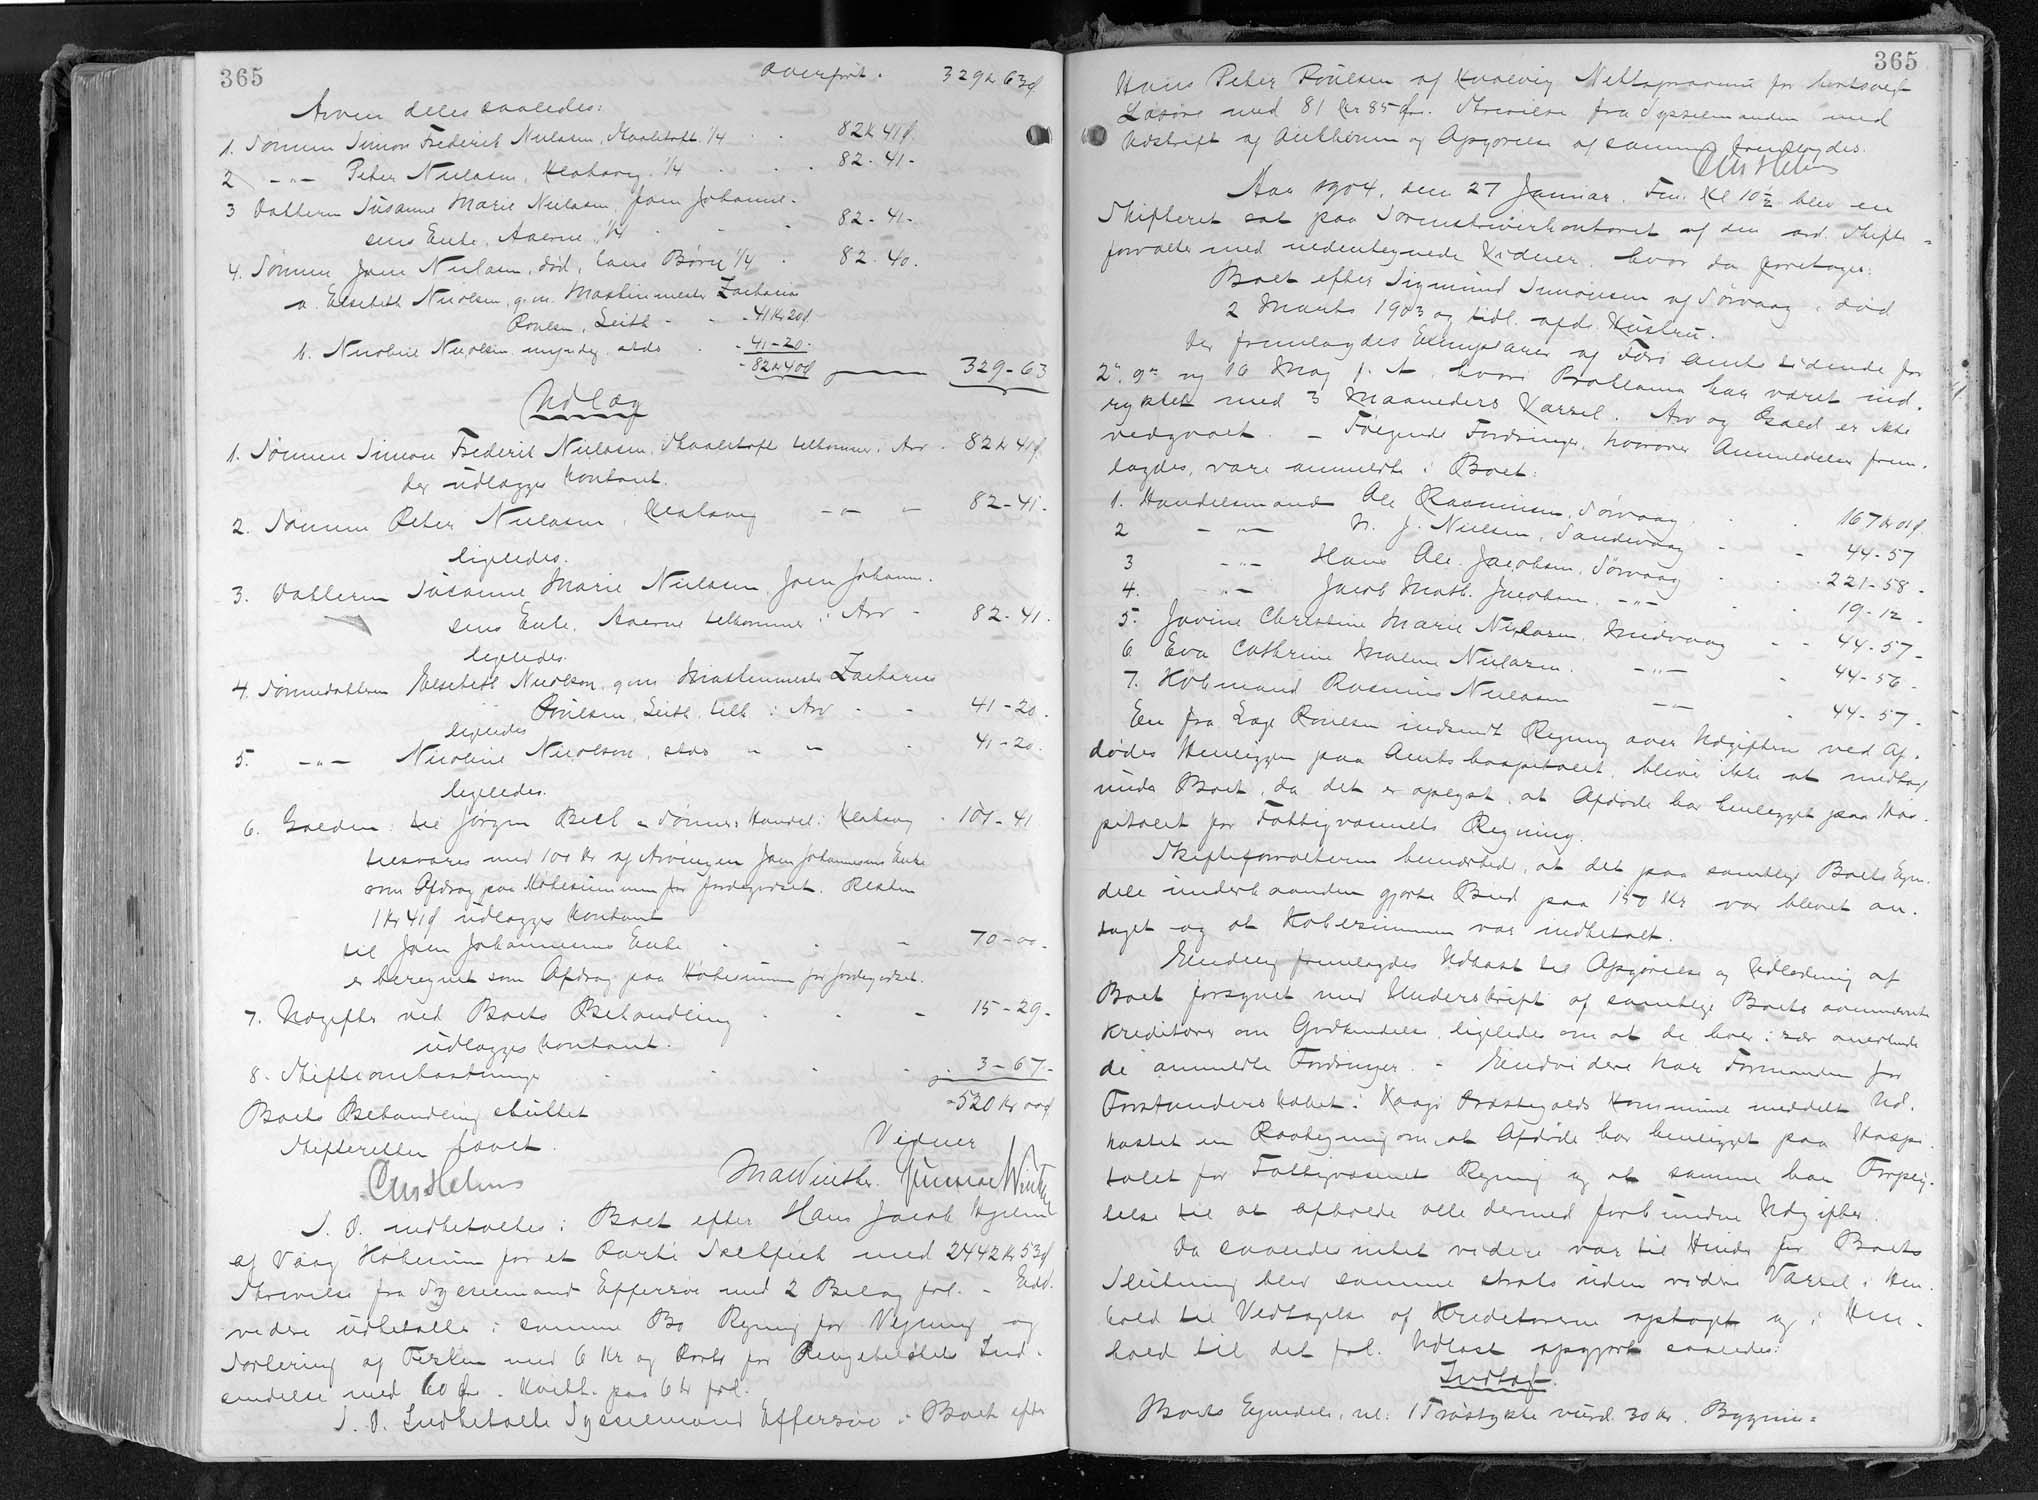 365
Overført. 329 Kr 63 Ø
Arven deles saaledes:
1. Sønnen Simon Frederik Nielsen, Skaaletoft 1/4 . . 82 Kr 41 Ø
2 -"- Peter Nielsen, Klaksvig 1/4 . . . 82-41-
3 Datteren Susanne Marie Nielsen, Joen Johanne-
sens Enke, Aaerne, 1/4 . . . 82-41-
4. Sønnen Joen Nielsen, død, hans Børn 1/4 . 82-40.
a. Elsebeth Nicolsen, g. m. Maskinmester Zacharias
Poulsen, Leith - - 41 Kr 20 Ø
b. Nicoline Nicolsen, myndig, sstds . . 41-20-
82 Kr 40 Ø 329-63
Udlæg
1. Sønnen Simon Frederik Nielsen, Skaaletoft tilkommer i Arv . 82 Kr 41 Ø
der udlægges kontant.
2. Sønnen Peter Nielsen, Klaksvig - " - 82-41-
ligeledes.
3. Datteren Susanne Marie Nielsen, Joen Johanne-
sens Enke, Aaerne tilkommer i Arv - 82-41.
ligeledes.
4. Sønnedatteren Elsebeth Nicolsen, g. m. Maskinmester Zacharias
Poulsen, Leith, tilk. i Arv - - 41-20.
ligeledes
5. -"- Nicoline Nicolsen, sstds " " . 41-20.
ligeledes.
6. Gælden: til Jørgen Bech & Sønners Handel i Klaksvig . 101-41
tilsvares med 100 Kr af Arvingen Joen Johannesens Enke
som Afdrag paa Købesummen for Jordegodset. Resten
1 Kr 41 Ø udlægges kontant
til Joen Johannesens Enke - . - 70-00-
er beregnet som Afdrag paa Købesum for Jordegodset.
7. Udgifter ved Boets Behandling . . - 15-29-
udlægges kontant.
8. Skifteomkostninger . . . 3-67-
520 Kr 00 Ø
Boets Behandling sluttet
Skifteretten hævet.
Vidner
C. M. Helms M. A. Winther.
S. D. indbetaltes i Boet efter Hans Jacob
af Vaag Købesum for et Parti Saltfisk med 2442 Kr 53 Ø
Skrivelse fra Sysselmand Effersøe med 2 Bilag frl. - End-
videre udbetaltes i samme Bo Regning for Vejning og
Sortering af Fisken med 6 Kr og Porto for Pengebeløbets Ind-
sendelse med 60 Øre. Kvitt. paa 6 Kr frl.
S. D. Indbetalte Sysselmand Effersøe i Boet efter
365
Hans Peter Poulsen af Hvalvig Nettoprovenu for bortsolgt
Løsøre med 81 Kr 85 Øre. Skrivelse fra Sysselmanden med
Udskrift af Auktionen og Opgørelse af samme fremlagdes.
C. M. Helms
Aar 1904, den 27 Januar. Fm. Kl 10½ blev en
Skifteret sat paa Sorenskriverkontoret af den ord. Skifte-
forvalter med nedentegnede Vidner, hvor da foretoges:
Boet efter Sigmund Simonsen af Sørvaag, død
2 Marts 1903 og tidl. afd. Hustru.
Der fremlagdes Exemplarer af Færø Amts Tidende for
2', 9' og 16 Maj f. A., hvori Proklama har været ind-
rykket med 3 Maaneders Varsel. Arv og Gæld er ikke
vedgaaet. - Følgende Fordringer, hvorover Anmeldelser frem-
lagdes, vare anmeldte i Boet:
1. Handelsmand Ole Rasmussen, Sørvaag . . 167 Kr 01 Ø
2 -"- N. J. Nielsen, Sandevaag - - 44-57
3 -"- Hans Ole Jacobsen, Sørvaag . . 221-58-
4. -"- Jacob Math. Jacobsen, -"- . . 19-12-
5. Jovine Christine Marie Nielsen, Midvaag - - 44-57-
6 Eva Cathrine Malene Nielsen. -"- . 44-56-
7. Købmand Rasmus Nielsen -"- . 44-57-
En fra Læge Poulsen indsendt Regning over Udgifterne ved Af-
dødes Henliggen paa Amtshospitalet, bliver ikke at medtage
under Boet, da det er oplyst, at Afdøde har henligget paa Hos-
pitalet for Fattigvæsenets Regning.
Skifteforvalteren bemærkede, at det paa samtlige Boets Ejen-
dele underhaanden gjorte Bud paa 150 Kr var blevet an-
taget og at Købesummen var indbetalt.
Endelig fremlagdes Udkast til Opgørelse og Udlodning af
Boet forsynet med Underskrift af samtlige Boets anmeldte
Kreditorer om Godkendelse, ligeledes om at de hver især anerkende
de anmeldte Fordringer. - Endvidere har Formanden for
Forstanderskabet i Vaagø Præstegælds Kommune meddelt Ud-
kastet en Paategning om, at Afdøde har henligget paa Hospi-
talet for Fattigvæsenets Regning og at samme har Forplig-
telse til at afholde alle dermed forbundne Udgifter.
Da saaledes intet videre var til Hinder for Boets
Slutning blev samme straks uden videre Varsel i Hen-
hold til Vedtagelse af Kreditorerne optaget og i Hen-
hold til det frl. Udkast opgjort saaledes:
Indtægt.
Boets Ejendele, nl: 1 Træstykke vurd. 30 Kr. Bygnin-